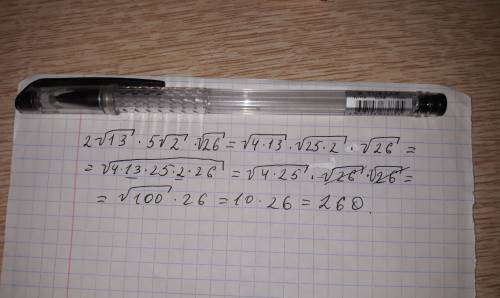 2√13 · 5√2 · √26 = √4·13 · √25·2 · √26 =
= √4·13·25·2·26 = √4·25 · √26 · √26 =
= √100 · 26 = 10 · 26 = 260.